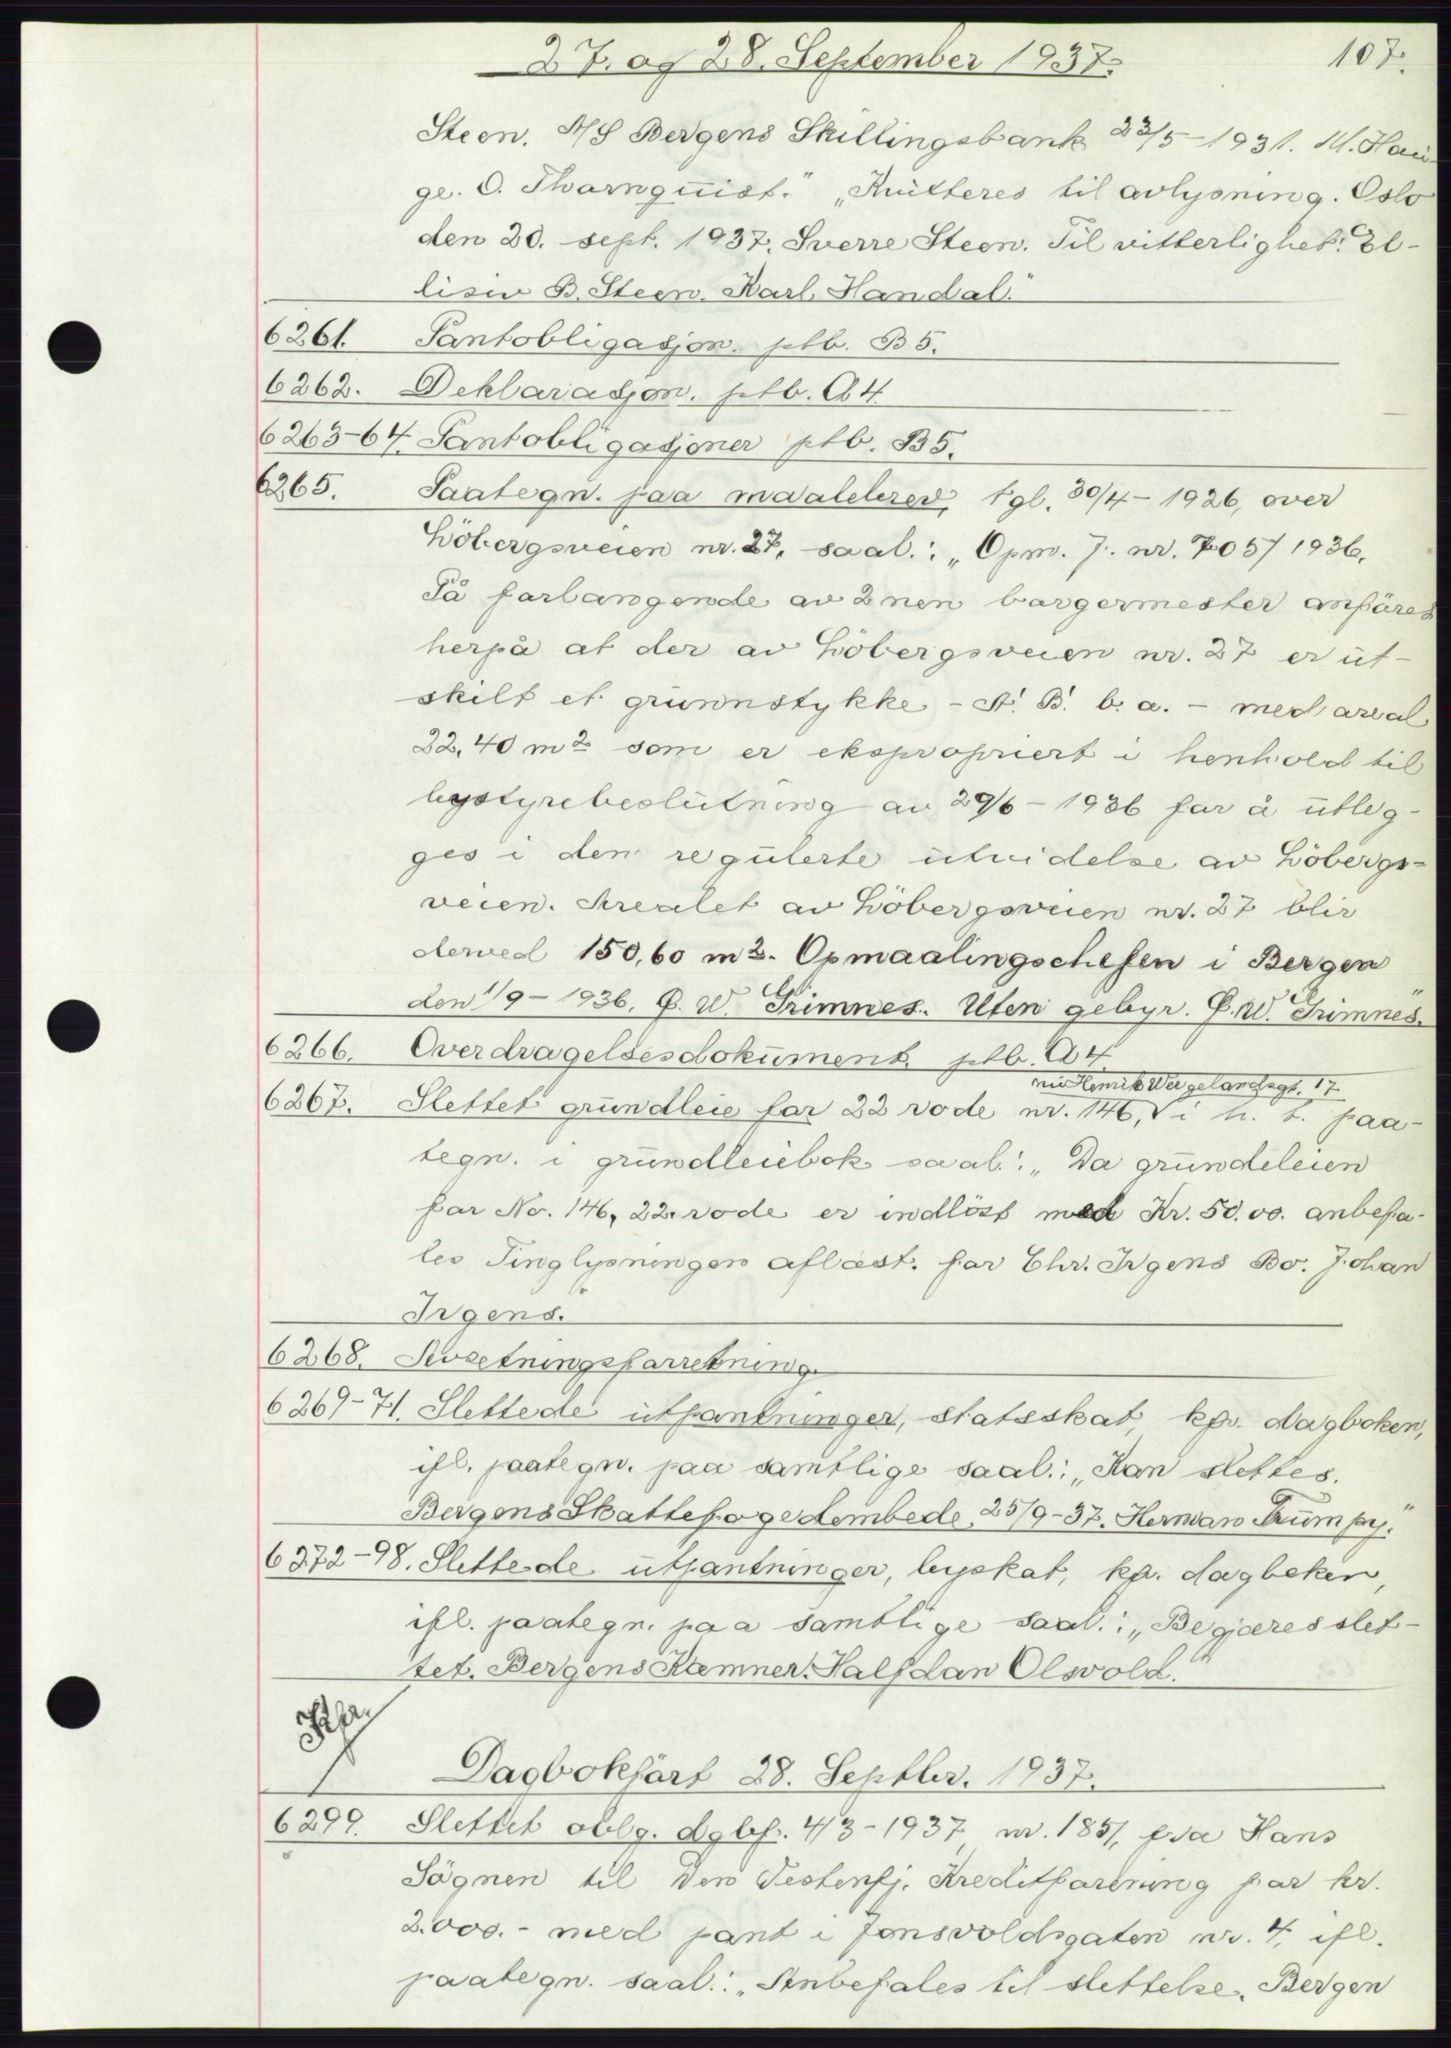 27. og 28. September 1937.
107.
Steen. A/S Bergens Skillingsbank 23/5-1931. M. Hau-
ge. O. Thornquist." „Kvitteres til avlysning. Oslo
den 20. sept. 1937. Sverre Steen. Til vitterlighet: El-
lisiv B. Steen. Karl Handal."
6261. Pantobligasjon. ptb. B 5.
6262. Deklarasjon. ptb. A 4.
6263-64. Pantobligasjoner ptb. B 5.
6265. Paategn. paa maalebrev, tgl. 30/4-1926, over
Löbergsveien nr. 27, saal.: „Opm. J. nr. 705/1936.
På forlangende av 2nen borgermester anföres
herpå at der av Löbergsveien nr. 27 er ut-
skilt et grunnstykke - A! B! b. a. - med areal
22,40 m2 som er ekspropriert i henhold til
bystyrebeslutning av 29/6-1936 for å utleg-
ges i den regulerte utvidelse av Löbergs-
veien. Arealet av Löbergsveien nr. 27 blir
derved 150,60 m2. Opmaalingschefen i Bergen
den 1/9-1936. G. W. Grimnes. Uten gebyr. G. W. Grimnes."
6266. Overdragelsesdokument. ptb. A 4.
nu Henrik Wergelandsgt. 17
6267. Slettet grundleie for 22 rode nr. 146, V i h. t. paa-
tegn. i grundleiebok saal.: „Da grundeleien
for No. 146, 22. rode er indlöst med Kr. 50.00. anbefa-
les Tinglysningen aflæst. for Chr. Irgens Bo. Johan
Irgens."
6268. Avsetningsforretning.
6269-71. Slettede utpantninger, statsskat, kfr. dagboken,
ifl. paategn. paa samtlige saal.: „Kan slettes.
Bergens Skattefogedembede, 25/9-37. Herman Trumpy."
6272-98. Slettede utpantninger, byskat, kfr. dagboken,
ifl. paategn. paa samtlige saal.: „Begjæres slet-
tet. Bergens Kæmner. Halfdan Olsvold."
Dagbokfört 28. Septbr. 1937.
6299. Slettet oblg. dgbf. 4/3-1937, nr. 1851, fra Hans
Sögnen til Den Vestenfj. Kreditforening for kr.
2.000.- med pant i Jonsvoldsgaten nr. 4, ifl.
paategn. saal.: „Anbefales til slettelse. Bergen